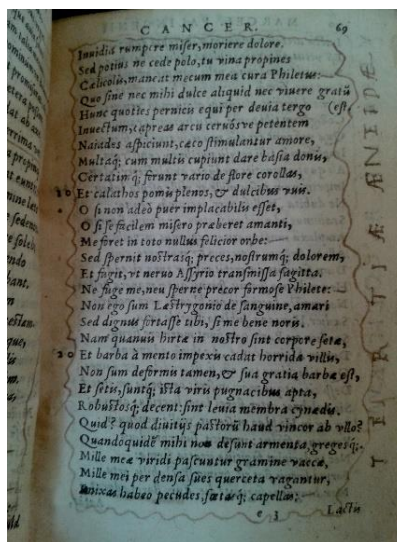 CANCER. 69
Inuidia rumpere miser, moriere dolore.
Sed potius ne cede polo, tu vina propines
Cælicolis, maneat mecum mea cura Philetus:
Quo sine nec mihi dulce aliquid nec viuere gratū
Hunc quoties pernicis equi per deuia tergo (est,
Inuectum, capreas arcu ceruósve petentem
Naiades aspiciunt, cæco stimulantur amore,
Multaq; cum multis cupiunt dare basia donis,
Certatim q; ferunt vario de flore corollas,
10 Et calathos pomis plenos, & dulcibus vuis.
O si non adeò puer implacabilis esset,
O si se facilem misero præberet amanti,
Me foret in toto nullus felicior orbe:
Sed spernit nostrasq; preces, nostrumq; dolorem,
Et fugit, vt neruo Assyrio transmissa sagitta.
Ne fuge me, neu sperne precor formose Philete:
Non ego sum Læstrygonio de sanguine, amari
Sed dignus fortasse tibi, si me bene noris.
Nam quanuis hirtæ in nostro sint corpore setæ,
20 Et barba à mento impexis cadat horrida villis,
Non sum deformis tamen, & sua gratia barbæ est,
Et setis, suntq; ista viris pugnacibus apta,
Robustosq; decent: sint leuia membra cynædis.
Quid? quod diuitijs pastorū haud vincor ab vllo?
Quandoquidē mihi non desunt armenta, gregesq;.
Mille meæ viridi pascuntur gramine vaccæ,
Mille mei per densa sues querceta vagantur,
Enixas habeo pecudes, fœtasq; capellas:
e 3 Lactis
TERTIÆ